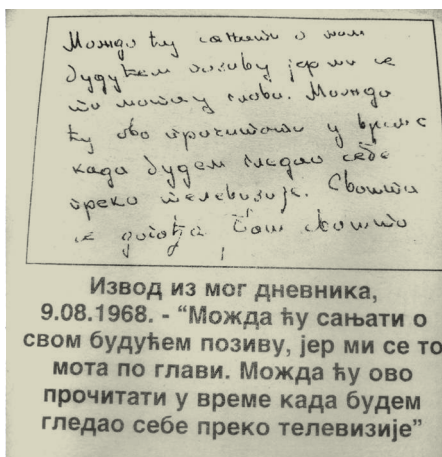 Можда ћу сањати о мом
будућем позиву јер ми се
то мота у глави. Можда
ћу ово прочитати у време
када будем гледао себе
преко телевизије. Свашта
се догађа
Извод из мог дневника,
9.08.1968. - “Можда ћу сањати о
свом будућем позиву, јер ми се то
мота по глави. Можда ћу ово
прочитати у време када будем
гледао себе преко телевизије”